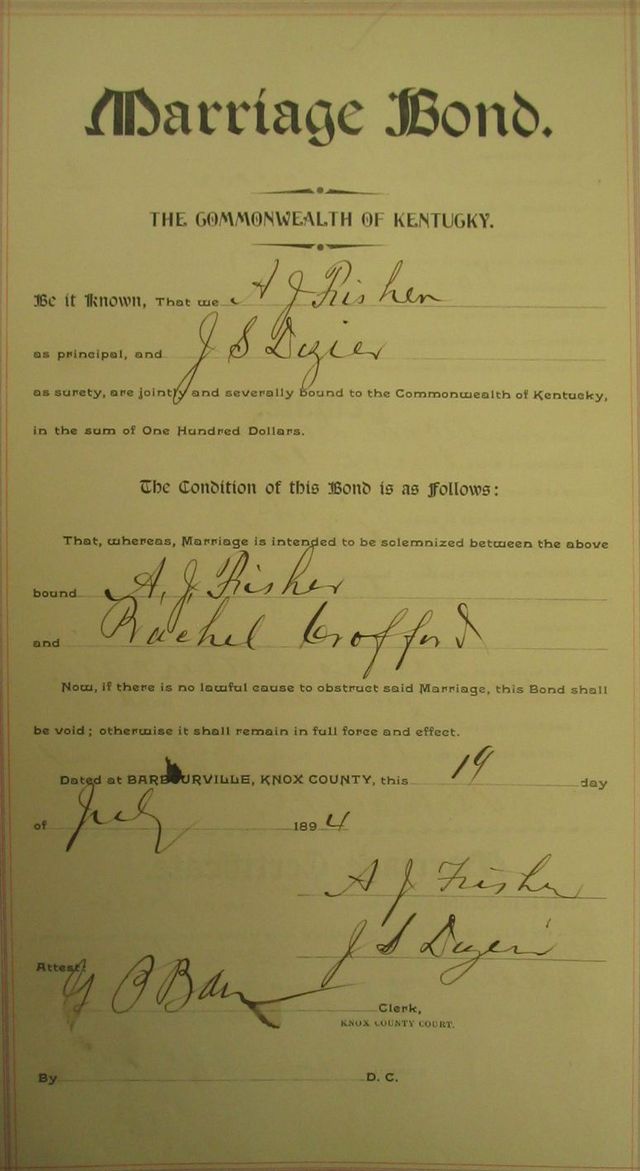 Marriage Bond.
THE COMMONWEALTH OF KENTUCKY.
Be it Known, That we A J Fisher
as principal, and J S Dozier
as surety, are jointly and severally bound to the Commonwealth of Kentucky,
in the sum of One Hundred Dollars.
The Condition of this Bond is as Follows:
That, whereas, Marriage is intended to be solemnized between the above
bound A, J, Fisher
and Rachel Crofford
Now, if there is no lawful cause to obstruct said Marriage, this Bond shall
be void; otherwise it shall remain in full force and effect.
Dated at BARBOURVILLE, KNOX COUNTY, this 19 day
of July 1894
A J Fisher
J S
Attest:
Clerk,
KNOX COUNTY COURT.
By D. C.